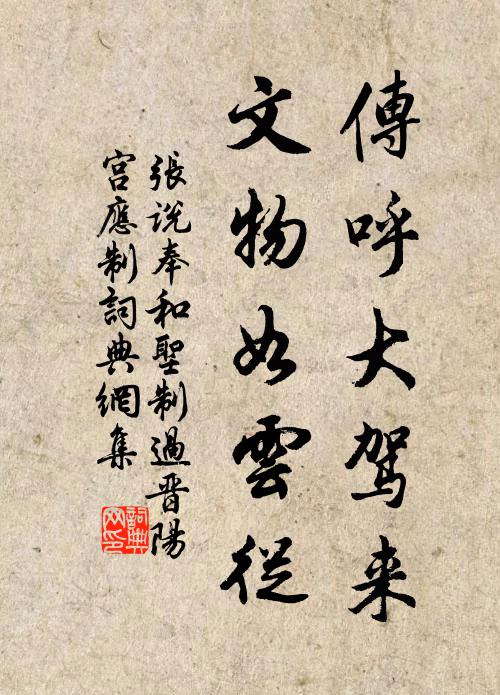 傳呼大駕来
文物如雲從
張説奉和聖制過晋陽
宫應制詞典網集
詞典
网印